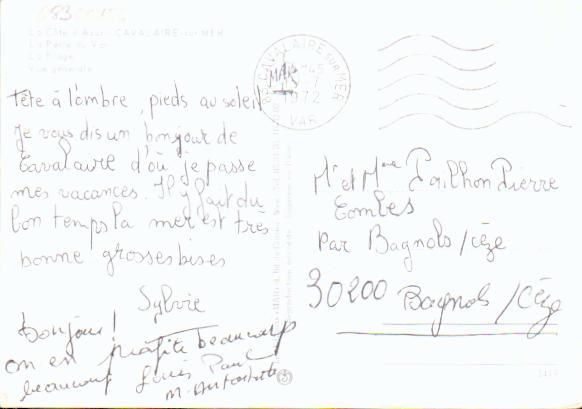 La Côte d'Azur - CAVALAIRE-sur-MER
La Perle du Var
La Plage
Vue générale
CAVALAIRE SUR MER
1972
VAR
Tête à l'ombre, pieds au soleil
Je vous dis un bonjour de
Cavalaire d'où je passe
mes vacances. Il y fait du
bon temps la mer est très
bonne grosses bises
Sylvie
Bonjour!
on en profite beaucoup
beaucoup Louis Paul
Mr et Mme Pailhon Pierre
Combes
par Bagnols/cèze
30200 Bagnols/Cèze